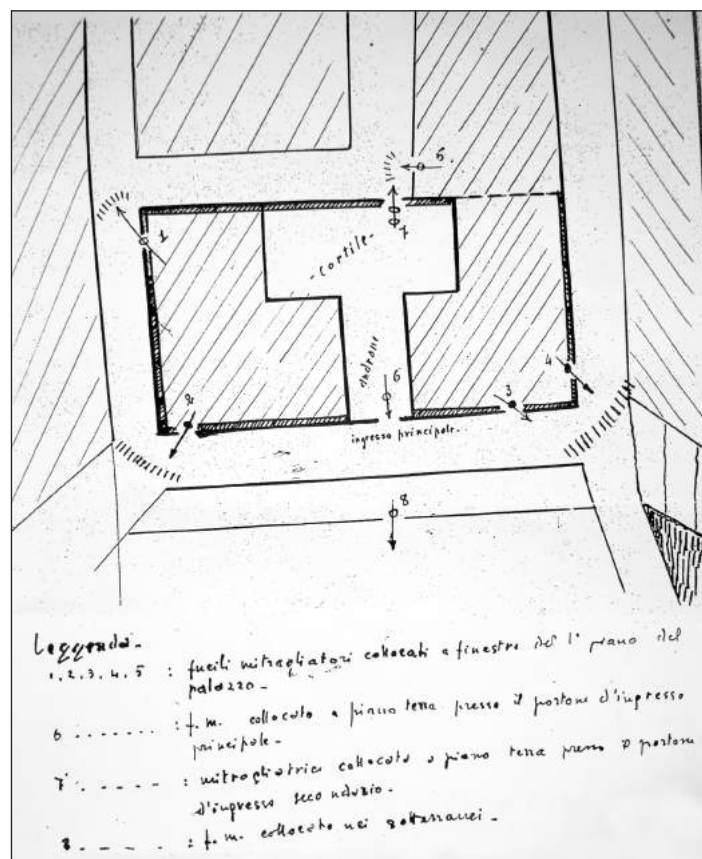 5.
1
7
- cortile -
androne
6
4
3
2
ingresso principale.
8
Leggenda -
1. 2. 3. 4. 5 : fucili mitragliatori collocati a finestre del 1° piano del
palazzo -
6 . . . . . . . : f. m. collocato a piano terra presso il portone d'ingresso
principale.
7 . - - - - : mitragliatrice collocata a piano terra presso il portone
d'ingresso secondario -
8 . - - - - . : f. m. collocato nei sotterranei -